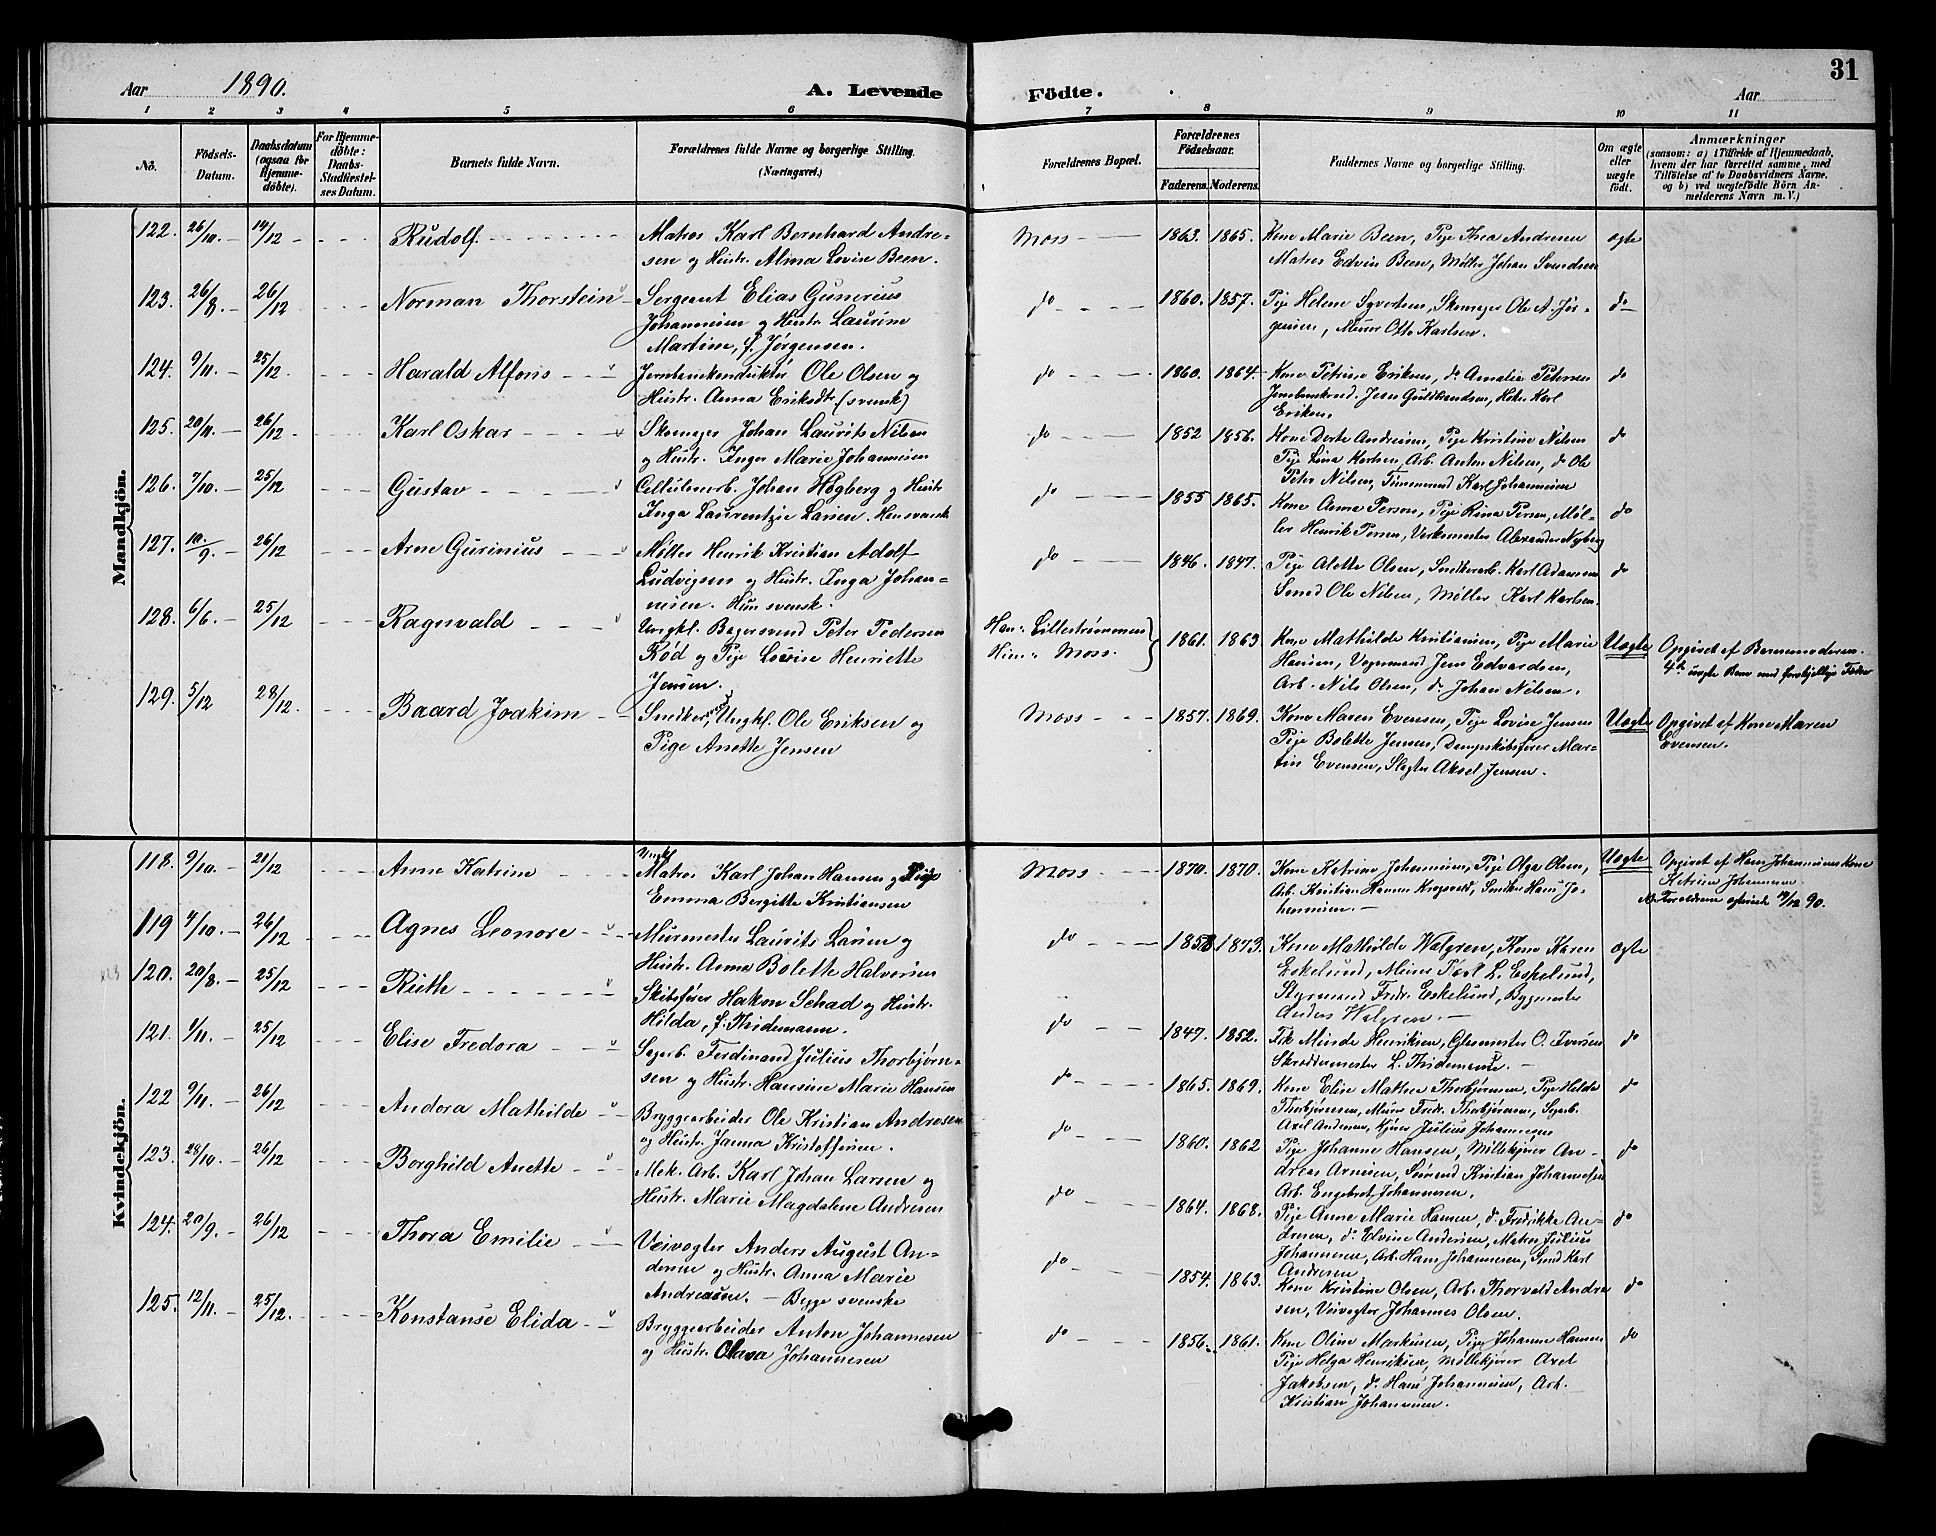 31
Aar 1890. A. Levende Födte. Aar
1 2 3 4 5 6 7 8 9 10 11
Nô. Födsels-Datum. Daabsdatum (ogsaa for Hjemmedöbte). For Hjemmedöbte: Daabs-Stadfestelses Datum. Barnets fulde Navn. Forældrenes fulde Navne og borgerlige Stilling. (Næringsvei.) Forældrenes Bopæl. Forældrenes Födselsaar. Faderens. Moderens. Faddernes Navne og borgerlige Stilling. Om ægte eller uægte födt. Anmærkninger (saasom: a) i Tilfælde af Hjemmedaab, hvem der har forrettet samme, med Tilföielse af to Daabsvidners Navne, og b) ved uægtefödte Börn Anmelderens Navn m. V.)
Mandkjön.
122. 26/10. 14/12 Rudolf. Matros Karl Bernhard Andre- Moss 1863. 1865. Kone Marie Been, Pige Thea Andresen ægte
sen og Hustr. Alma Lovise Been. Matros Edvin Been, Møller Johan Svendsen
123. 26/8. 26/12 Norman Thorstein Sergeant Elias Gunerius do 1860. 1857. Pige Helene Syvertsen, Skomager Ole A. Jør- do
Johannesen og Hustr. Laurine gensen, Murer Otto Karlsen.
Martine, f. Jørgensen.
124. 9/11. 25/12 Harald Alfons Jernbanekonduktør Ole Olsen og do 1860. 1864. Kone Petrine Eriksen, do Amalie Petersen do
Hustr. Anna Eriksdtr. (svensk) Jernbanekond. Jens Guldbrandsen, Karl
Eriksen.
125. 20/11. 26/12 Karl Oskar Skomager Johan Laurits Nilsen do 1852 1856. Kone Dorte Andresen, Pige Kristine Nilsen do
og Hustr. Inger Marie Johannesen Pige Lina Karlsen, Arb. Anton Nilsen, do Ole
Peter Nilsen, Tømmermd Karl Johannesen
126. 7/10. 25/12 Gustav Cellulosearb. Johan Høgberg og Hustr. do 1855 1865. Kone Anna Person, Pige Rina Person, Møl- do
Inga Laurentzie Larsen. Han svensk ler Henrik Person, Verksmester Alexander Nyberg
127. 10/9. 26/12 Arne Gurinius Møller Henrik Kristian Adolf do 1846. 1847. Pige Alette Olsen, Snedkerarb. Karl Adamsen do
Ludvigsen og Hustr. Inga Johan- Smed Ole Nilsen, Møller Karl Karlsen.
nesen. Hun svensk.
128. 6/6. 25/12 Ragnvald Ungkl. Bagersvend Peter Pedersen Han: Lillestrømmen 1861. 1863 Kone Mathilde Kristiansen, Pige Marie Uægte Opgivet af Barnemoderen.
Kød og Pige Lovise Henriette Hun: Moss. Hansen, Vognmand Jens Edvardsen, 4de uægte Barn med forskjellige Fædre
Jensen. Arb. Nils Olsen, do Johan Nilsen.
129. 5/12 28/12. Baard Joakim Snedker, Ungkl. Ole Eriksen og Moss 1857. 1869. Kone Maren Evensen, Pige Lovise Jensen Uægte Opgivet af Kone Maren
Pige Anette Jensen Pige Bolette Jensen, Dampskibsfører Mar- Evensen.
tin Evensen, Slagter Aksel Jensen.
Kvindekjön.
118. 9/10. 21/12 Anne Katrine Ungkl. Matros Karl Johan Hansen og Pige Moss 1870. 1870. Kone Katrine Johannesen, Pige Olga Olsen, Uægte Opgivet af Hans Johannesens Kone
Emma Bergitte Kristiansen Arb. Kristian Hansen Krogsveld, Snedker Hans Jo- Katrine Johannesen.
hannesen. NB. Forældrene ægteviet /12 90.
119 4/10. 26/12 Agnes Leonore Murmester Laurits Larsen og do 1858 1873. Kone Mathilde Walgren, Kone Karen ægte
Hustr. Anna Bolette Halvorsen Eskelund, Murer Karl L. Eskelund,
Styrmand Fredr. Eskelund, Bygmester
Anders Walgren.
120. 20/8. 25/12 Ruth Skibsfører Hakon Schad og Hustr. do 1847. 1852. Frk Minda Henriksen, Glasmester O. Iversen do
Hilda, f. Thidemann. Skræddermester L. Thidemann.
121. 1/11. 25/12 Elise Fredora Sagarb. Ferdinand Julius Thorbjørn- do 1865. 1869. Kone Elise Mathea Thorbjørnsen, Pige Helda do
sen og Hustr. Hansine Marie Hansen Thorbjørnsen, Murer Fredr. Thorbjørnsen, Sagarb.
Axel Andersen, Kjører Julius Johannesen
122 9/11. 26/12 Andora Mathilde Bryggearbeider Ole Kristian Andresen do 1860. 1862 Pige Johanne Hansen, Møllekjører An- do
og Hustr. Janna Kristoffersen. dreas Arnesen, Sømand Kristian Johannesen
Arb. Engebret Johannesen.
123. 28/10. 26/12 Borghild Anette Mek. Arb. Karl Johan Larsen og do 1864. 1868. Pige Anne Marie Hansen, do Fredrikke An- do
Hustr. Marie Magdalene Andresen dresen, do Elvine Andersen, Matros Julius
Johannesen, Arb. Hans Johannesen, Smed Karl
Andresen
124. 20/9. 26/12 Thora Emilie Veivogter Anders August An- do 1854. 1863. Kone Kristine Olsen, Arb. Thorvald Andre do
dersen og Hustr. Anna Marie sen, Veivogter Johannes Olsen.
Andreasen. — Begge svenske
125. 12/11. 25/12. Konstanse Elida Bryggearbeider Anton Johannesen do 1856. 1861. Kone Oline Markusen, Pige Johanne Hansen do
og Hustr. Olava Johannesen Pige Helga Henriksen, Møllekjører Axel
Jakobsen, do Hans Johannesen, Arb.
Kristian Johannesen.